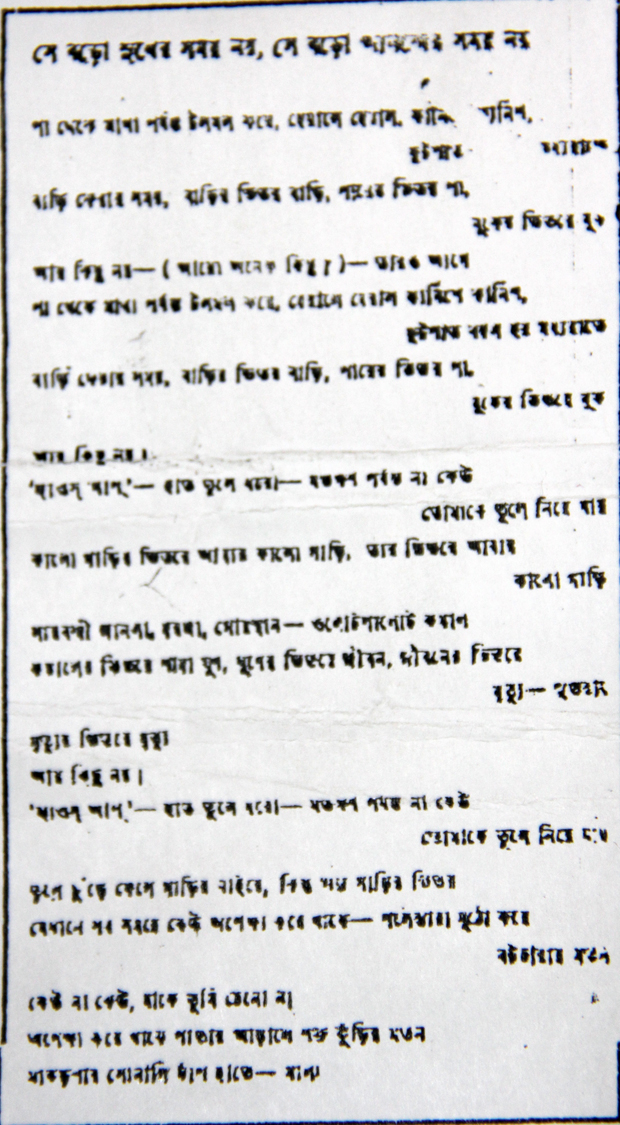 সে বড়ো সুখের সময় নয়, সে বড়ো আনন্দের সময় নয়
পা থেকে মাথা পর্যন্ত টলমল করে, দেয়ালে দেয়াল, কার্নিশে কার্নিশ,
ফুটপাত মধ্যরাতে
বাড়ি ফেরার সময়, বাড়ির ভিতর বাড়ি, পায়ের ভিতর পা,
বুকের ভিতরে বুক
আর কিছু নয়— ( আরো অনেক কিছু ? )— তারও আগে
পা থেকে মাথা পর্যন্ত টলমল করে, দেয়ালে দেয়াল কার্নিশে কার্নিশ,
ফুটপাত বদল হয় মধ্যরাতে
বাড়ি ফেরার সময়, বাড়ির ভিতর বাড়ি, পায়ের ভিতর পা,
বুকের ভিতরে বুক
আর কিছু নয়।
'হ্যাণ্ডস্ আপ্'— হাত তুলে ধরো— যতক্ষণ পর্যন্ত না কেউ
তোমাকে তুলে নিয়ে যায়
কালো গাড়ির ভিতরে আবার কালো গাড়ি, তার ভিতরে আবার
কালো গাড়ি
সারবন্দী জানলা, দরজা, গোরস্থান— ওলোটপালোট কঙ্কাল
কঙ্কালের ভিতরে সাদা ঘুণ, ঘুণের ভিতরে জীবন, জীবনের ভিতরে
মৃত্যু— সুতরাং
মৃত্যুর ভিতরে মৃত্যু
আর কিছু নয়।
'হ্যাণ্ডস্ আপ্'— হাত তুলে ধরো— যতক্ষণ পর্যন্ত না কেউ
তোমাকে তুলে নিয়ে যায়
তুলে ছুঁড়ে ফেলে গাড়ির বাইরে, কিন্তু অন্য গাড়ির ভিতর
যেখানে সব সময় কেউ অপেক্ষা করে থাকে— পলেস্তারা মুঠো করে
বটচারার মতন
কেউ না কেউ, যাকে তুমি চেনো না
অপেক্ষা করে থাকে পাতার আড়ালে শক্ত কুঁড়ির মতন
মাকড়সার সোনালি ফাঁস হাতে— মালা